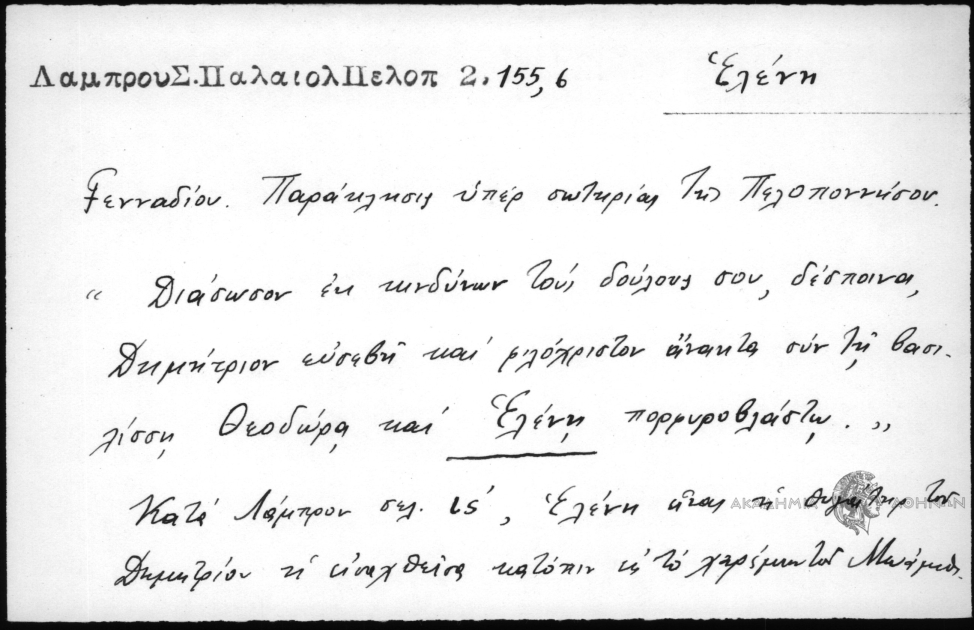 ΛαμπρουΣ.ΠαλαιολΠελοπ 2.155,6 Ἑλένη
Γενναδίου. Παράκλησις ὑπέρ σωτηρίας τῆς Πελοποννήσου.
“ Διάσωσον ἐκ κινδύνων τούς δούλους σου, δέσποινα,
Δημήτριον εὐσεβῆ καί φιλόχριστον ἄνακτα σύν τῇ βασι-
λίσσῃ Θεοδώρᾳ καί Ἑλένῃ πορφυροβλάστῳ. „
Κατά Λάμπρον σελ. ιϛ´, Ἑλένη εἶναι ἡ θυγάτηρ τοῦ
Δημητρίου ἡ εἰσαχθεῖσα κατόπιν εἰς τό χαρέμιον τοῦ
ΑΚΑΔΗΜΙΑ ΑΘΗΝΩΝ